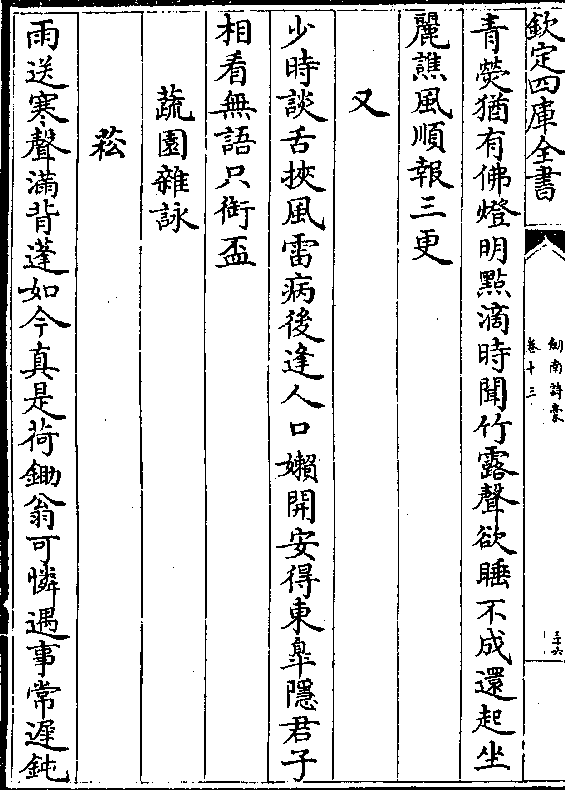 欽定四庫全書
劍南詩稾
卷十三
三十六
青熒猶有佛燈明點滴時聞竹露聲欲睡不成還起坐
麗譙風順報三更
又
少時談舌挾風雷病後逢人口嬾開安得東臯隱君子
相看無語只銜盃
蔬園雜詠
菘
雨送寒聲滿背蓬如今真是荷鋤翁可憐遇事常遲鈍